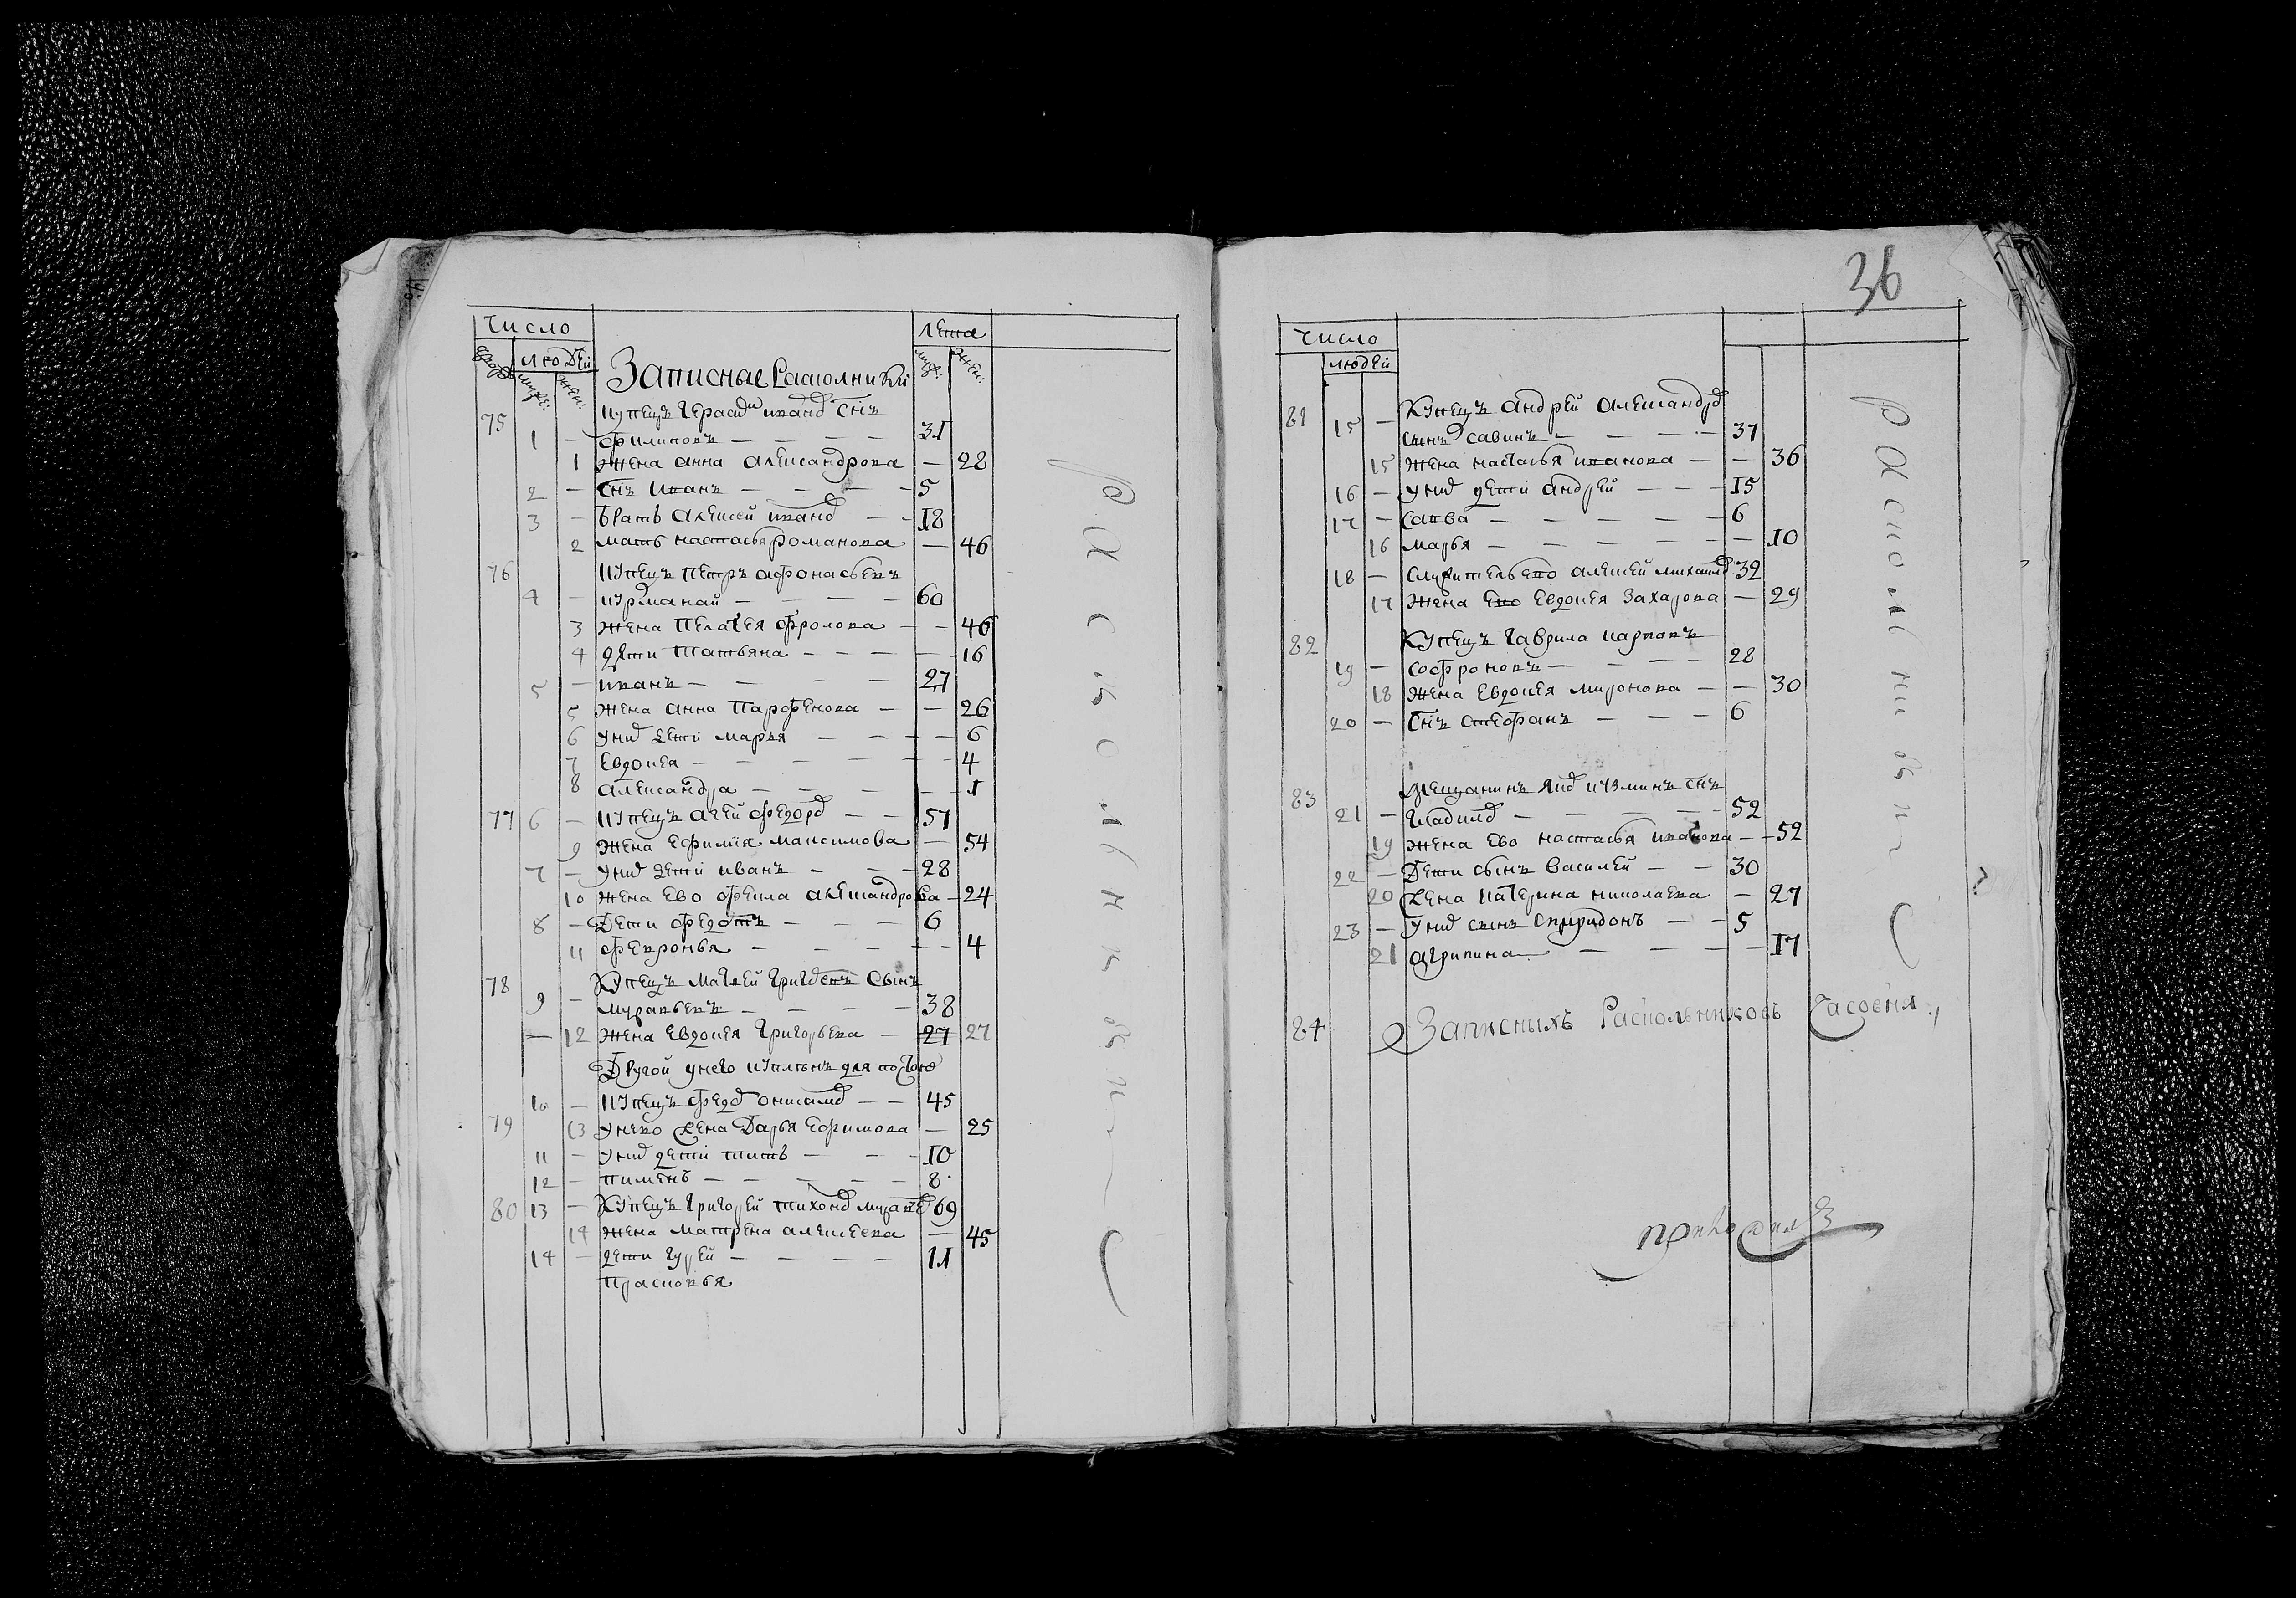 Число
Лета
дворов людей
муж: жен:
муж: жен:
Записные Расколники
75 купецъ Герасим иванов снъ
1 — филиповъ — 31
1 жена анна александрова — 28
2 — снъ иванъ — 5
3 — братъ алексей иванов — 18
2 мать настасья романова — 46
76 купецъ петръ афонасьевъ
4 — курманай — 60
3 жена пелагея фролова — 46
4 дети татьяна — 16
5 — иванъ — 27
5 жена анна парфенова — 26
6 у них дети марья — 6
7 евдокея — 4
8 александра — 1
77 6 — купецъ агей федоров — 57
9 жена ефимия максимова — 54
7 — у них дети иванъ — 28
10 жена ево фекла александрова — 24
8 — дети федотъ — 6
11 февронья — 4
78 купецъ матвей григоревъ сынъ
9 — муравьевъ — 38
— 12 жена евдокея григорьева — 27 27
Другой у него купленъ для постою
10 — купецъ федор — 45
79 13 у него жена Дарья ефимова — 25
11 — у них дети титъ — 10
12 — пименъ — 8
80 13 — купецъ григорей тихонов муравьев 69
14 жена матрена алексеева — 45
14 — дети гурей — 11
прасковья
Раскольники
36
Число
людей
81 купецъ андрей александров
15 — сынъ савинъ — 37
15 жена настасья иванова — 36
16 — у них дети андрей — 15
17 — савва — 6
16 марья — 10
18 — служитель ево алексей михаилов 32
17 жена ево евдокея захарова — 29
82 купецъ гаврила карповъ
19 — софроновъ — 28
18 жена евдокея миронова — 30
20 — снъ стефанъ — 6
83 мещанинъ яков кузминъ снъ
21 — гладилов — 52
19 жена ево настасья иванова — 52
22 — дети сынъ василей — 30
20 жена катерина николаева — 27
23 — у них сынъ спиридонъ — 5
21 агрипина — 17
84 Записныхъ Раскольниковъ Часовня
Раскольники